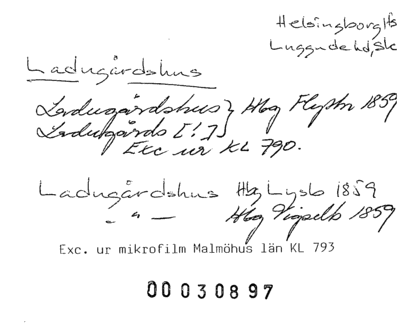 Helsingborg lfs
Luggude hd, Sk
Ladugårdshus
Ladugårdshus } Hbg Flyttn 1859
Ladugårds [!] }
Exc ur KL 790.
Ladugårdshus Hbg Lysb 1859
- " - Hbg Vigselb 1859
Exc. ur mikrofilm Malmöhus län KL 793
00030897